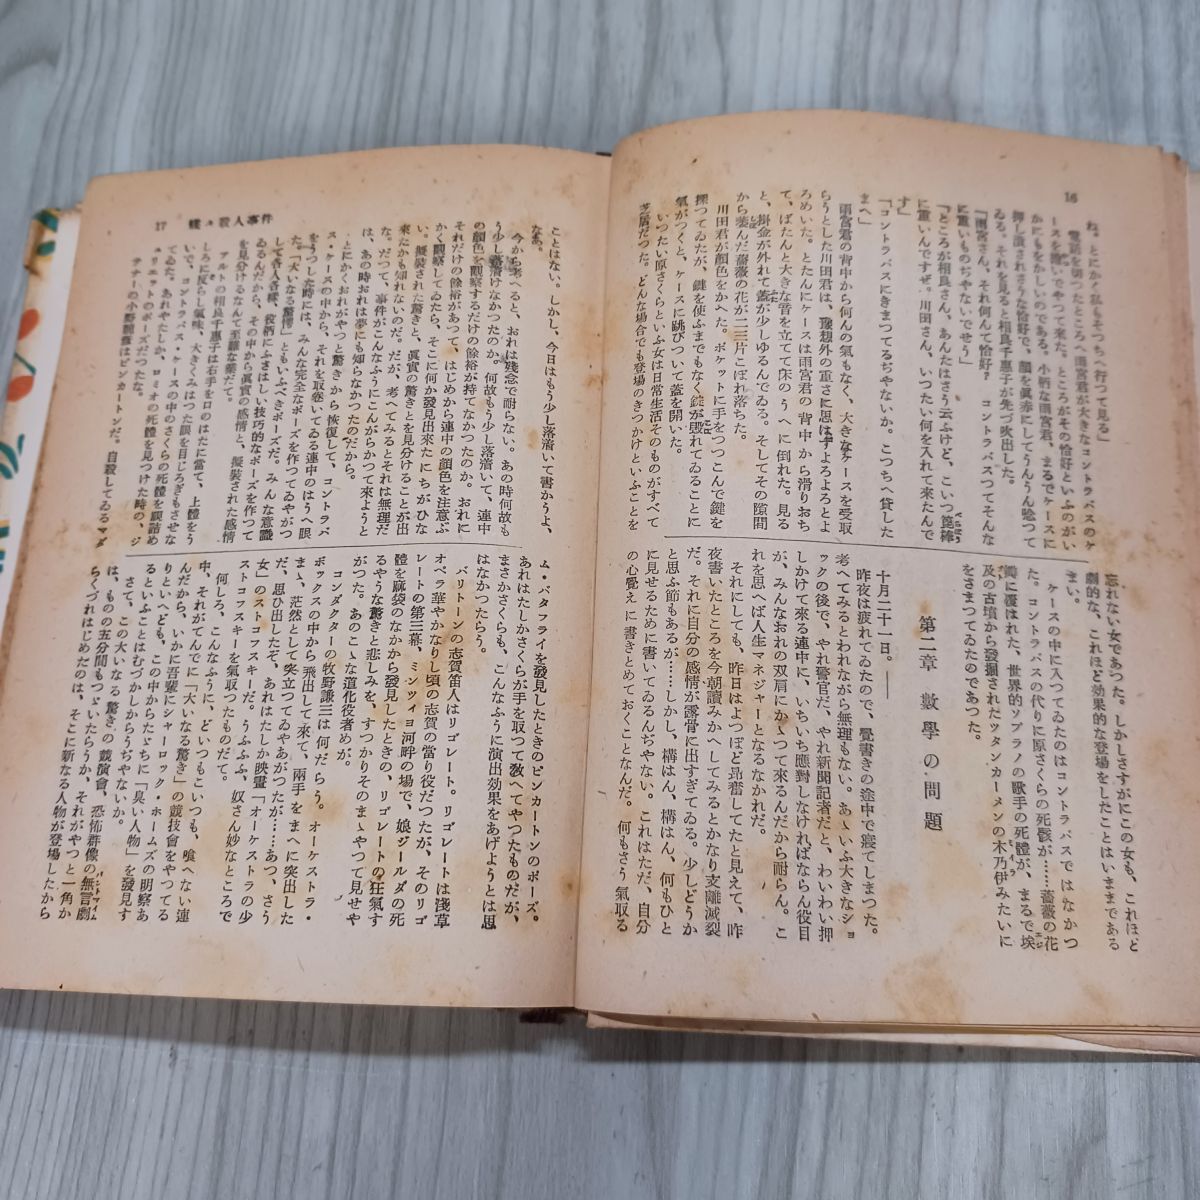 16
ね。とにかく私もそつちへ行つて見る」
電話を切つたところへ雨宮君が大きなコントラバスのケ
ースを擔いでやつて来た。ところがその恰好といふのがい
かにもをかしいのである。小柄な雨宮君、まるでケースに
押し潰されさうな恰好で、顔を眞赤にしてうんうん唸つて
ゐる。それを見ると相良千惠子が先づ吹出した。
「雨宮さん、それ何んて恰好? コントラバスつてそんな
に重いものぢやないでせう」
「ところが相良さん、あんたはさう云ふけど、こいつ篦棒
に重いんですぜ。川田さん、いつたい何を入れて来たんで
す」
「コントラバスにきまつてるぢやないか。こつちへ貸した
まへ」
雨宮君の背中から何んの氣もなく、大きなケースを受取
らうとした川田君は、豫想外の重さに思はずよろよろとよ
ろめいた。とたんにケースは雨宮君の背中から滑りおち
て、ばたんと大きな音を立てて床のうへに倒れた。見る
と、掛金が外れて蓋が少しゆるんでゐる。そしてその隙間
から萎んだ薔薇の花が二三片こぼれ落ちた。
川田君が顔色をかへた。ポケットに手をつつこんで鍵を
探つてゐたが、鍵を使ふまでもなく錠が毀れてゐることに
氣がつくと、ケースに跳びついて蓋を開いた。
いつたい原さくらといふ女は日常生活そのものがすべて
芝居だつた。どんな場合でも登場のきつかけといふことを
忘れない女であつた。しかしさすがにこの女も、これほど
劇的な、これほど効果的な登場をしたことはいまである
まい。
ケースの中に入つてゐたのはコントラバスではなかつ
た。コントラバスの代りに原さくらの死骸が……薔薇の花
瓣に覆はれた、世界的ソプラノの歌手の死體が、まるで埃
及の古墳から發掘されたツタンカーメンの木乃伊みたいに
をさまつてゐたのであつた。
第二章 數學の問題
十月二十一日。――
昨夜は疲れてゐたので、覺書きの途中で寢てしまつた。
考へてみるとわれながら無理もない。あゝいふ大きなショ
ックの後で、やれ警官だ、やれ新聞記者だと、わいわい押
しかけて來る連中に、いちいち應對しなければならん役目
が、みんなおれの双肩にかゝつて來るんだから耐らん。こ
れを思へば人生マネジャーとなるなかれだ。
それにしても、昨日はよつぽど昂奮してたと見えて、昨
夜書いたところを今朝讀みかへしてみるとかなり支離滅裂
だ。それに自分の感情が露骨に出すぎてゐる。少しどうか
と思ふ節もあるが……しかし、構はん、構はん、何もひと
に見せるために書いてゐるんぢやない。これはただ、自分
の心覺えに書きとめておくことなんだ。何もさう氣取る
17 蝶々殺人事件
ことはない。しかし、今日はもう少し落濟いて書かうよ、
なあ。
今から考へると、おれは殘念で耐らない。あの時何故も
う少し落濟けなかつたのか。何故もう少し落濟いて、連中
の顔色を觀察するだけの餘裕が持てなかつたのか。おれに
それだけの餘裕があつて、はじめから連中の顔色を注意ぶ
かく觀察してゐたら、そこに何か發見出來たにちがひな
い。擬裝された驚きと、眞實の驚きとを見分けることが出
來たかも知れないのだ。だが、考へてみるとそれは無理だ
な。だつて、事件がこんなふうにこんがらかつて來ようと
は、あの時おれは夢にも知らなかつたのだから。
とにかくおれがやつと驚きから恢復して、コントラバ
ス・ケースの中から、それを取巻いてゐる連中のはうへ眼
をうつした時には、みんな完全なポーズを作つてゐやがつ
た。「大いなる驚愕」ともいふべきポーズだ。みんな意識
して各各樣、役柄にふさはしい技巧的なポーズを作つて
ゐるんだから、その中から眞實の感情と、擬裝された感情
を見分けるなんて至難な業だて。
アルトの相良千惠子は右手を口のはたに當て、上體をう
しろに反らし氣味、大きくみはつた眼を目じろぎもさせな
いで、コントラバス・ケースの中のさくらの死體を眼詰め
てゐた。あれやたしか、ロミオの死體を見つけた時の、ジ
ュリエットのポーズだつたな。
テナーの小野龍彦はピンカートンだ。自殺してゐるマダ
ム・バタフライを發見したときのピンカートンのポーズ。
あれはたしかさくらが手を取つて敎へてやつたものだが、
まさかさくらも、こんなふうに演出効果をあげようとは思
はなかつたらう。
バリトーンの志賀笛人はリゴレート。リゴレートは淺草
オペラ華やかなりし頃の志賀の當り役だつたが、そのリゴ
レートの第三幕、ミンツィヨ河畔の場で、娘ジールダの死
體を麻袋のなかから發見したときの、リゴレートの狂氣す
るやうな驚きと悲しみを、すつかりそのまゝやつて見せや
がつた。あのこゝな道化役者めが。
コンダクターの牧野謙三は何だらう。オーケストラ・
ボックスの中から飛出して來て、兩手をまへに突出した
まゝ、茫然として突立つてゐやあがつたが……あつ、さう
だ、思ひ出したぞ、あれはたしか映畫「オーケストラの少
女」のストコフスキーだ。うふふふ、奴さん妙なところで
ストコフスキーを氣取つたものだて。
何しろ、こんなふうに、どいつもこいつも、喰へない連
中、それがてんでに「大いなる驚き」の競技會をやつてる
んだから、いかに吾輩にシャーロック・ホームズの明察あ
りといへども、この中からたゞちに「臭い人物」を發見す
るといふことはむづかしからうぢやないか。
さて、この大いなる驚きの競演會、恐怖群像の無言劇
は、もの五分間もつゞいたらうか、それがやつと一角か
らくづれはじめたのは、そこに新なる人物が登場したから